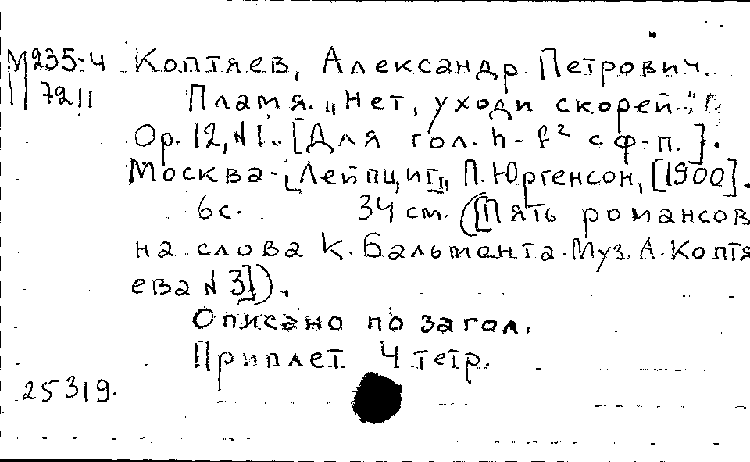 М235-4 Коптяев, Александр Петрович.
7211 Пламя. „Нет, уходи скорей."
Ор. 12, №1. [Для гол. h-f² с ф-п.].
Москва-[Лейпциг], П. Юргенсон, [1900].
6с. 34 см. ([Пять романсов
на слова К. Бальмонта. Муз. А. Коптя
ева № 3]).
Описано по загол.
Приплет. 4 тетр.
25319.